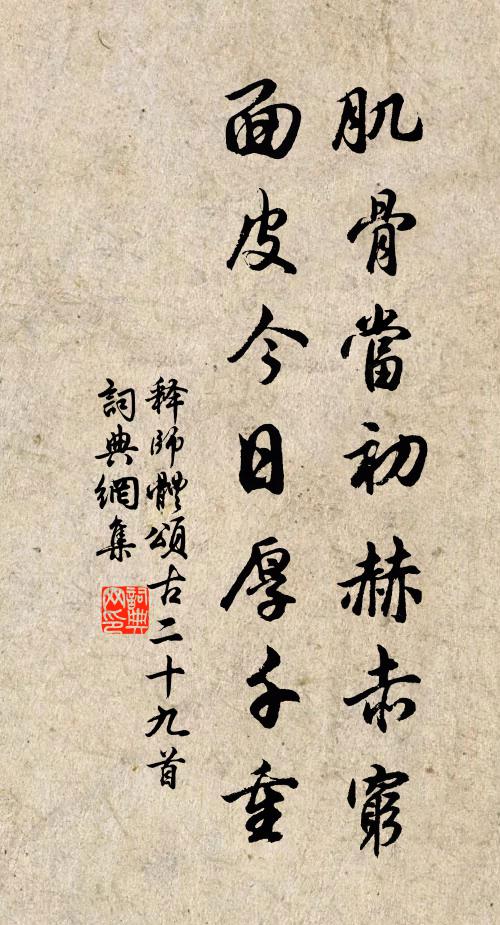 肌骨當初赫赤窮
面皮今日厚千重
释師體頌古二十九首
詞典網集
詞典網印